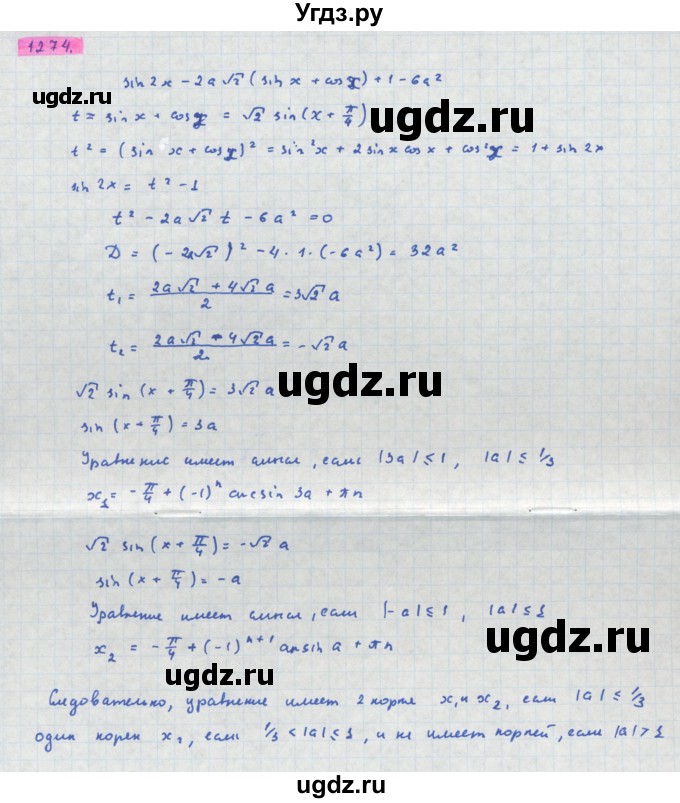 Угдз.ру
1274.
sin 2x - 2a√2 (sin x + cos x) + 1 - 6a²
ugdz.ru
t = sin x + cos x = √2 sin (x + π/4)
ugdz.ru
t² = (sin x + cos x)² = sin²x + 2 sin x cos x + cos²x = 1 + sin 2x
sin 2x = t² - 1
t² - 2a√2 t - 6a² = 0
D = (-2a√2)² - 4 · 1 · (-6a²) = 32a²
t₁ = (2a√2 + 4√2 a)/2 = 3√2 a
ugdz.ru
t₂ = (2a√2 - 4√2 a)/2 = -√2 a
√2 sin (x + π/4) = 3√2 a
ugdz.ru
sin (x + π/4) = 3a
Уравнение имеет смысл, если |3a| ≤ 1, |a| ≤ 1/3
x₁ = -π/4 + (-1)ⁿ arcsin 3a + πn
√2 sin (x + π/4) = -√2 a
ugdz.ru
sin (x + π/4) = -a
Уравнение имеет смысл, если |-a| ≤ 1, |a| ≤ 1
ugdz.ru
x₂ = -π/4 + (-1)ⁿ⁺¹ arcsin a + πn
ugdz.ru
Следовательно, уравнение имеет 2 корня x₁ и x₂, если |a| ≤ 1/3
один корен x₁, если 1/3 < |a| ≤ 1, и не имеет корней, если |a| > 1
ugdz.ru
ugdz.ru